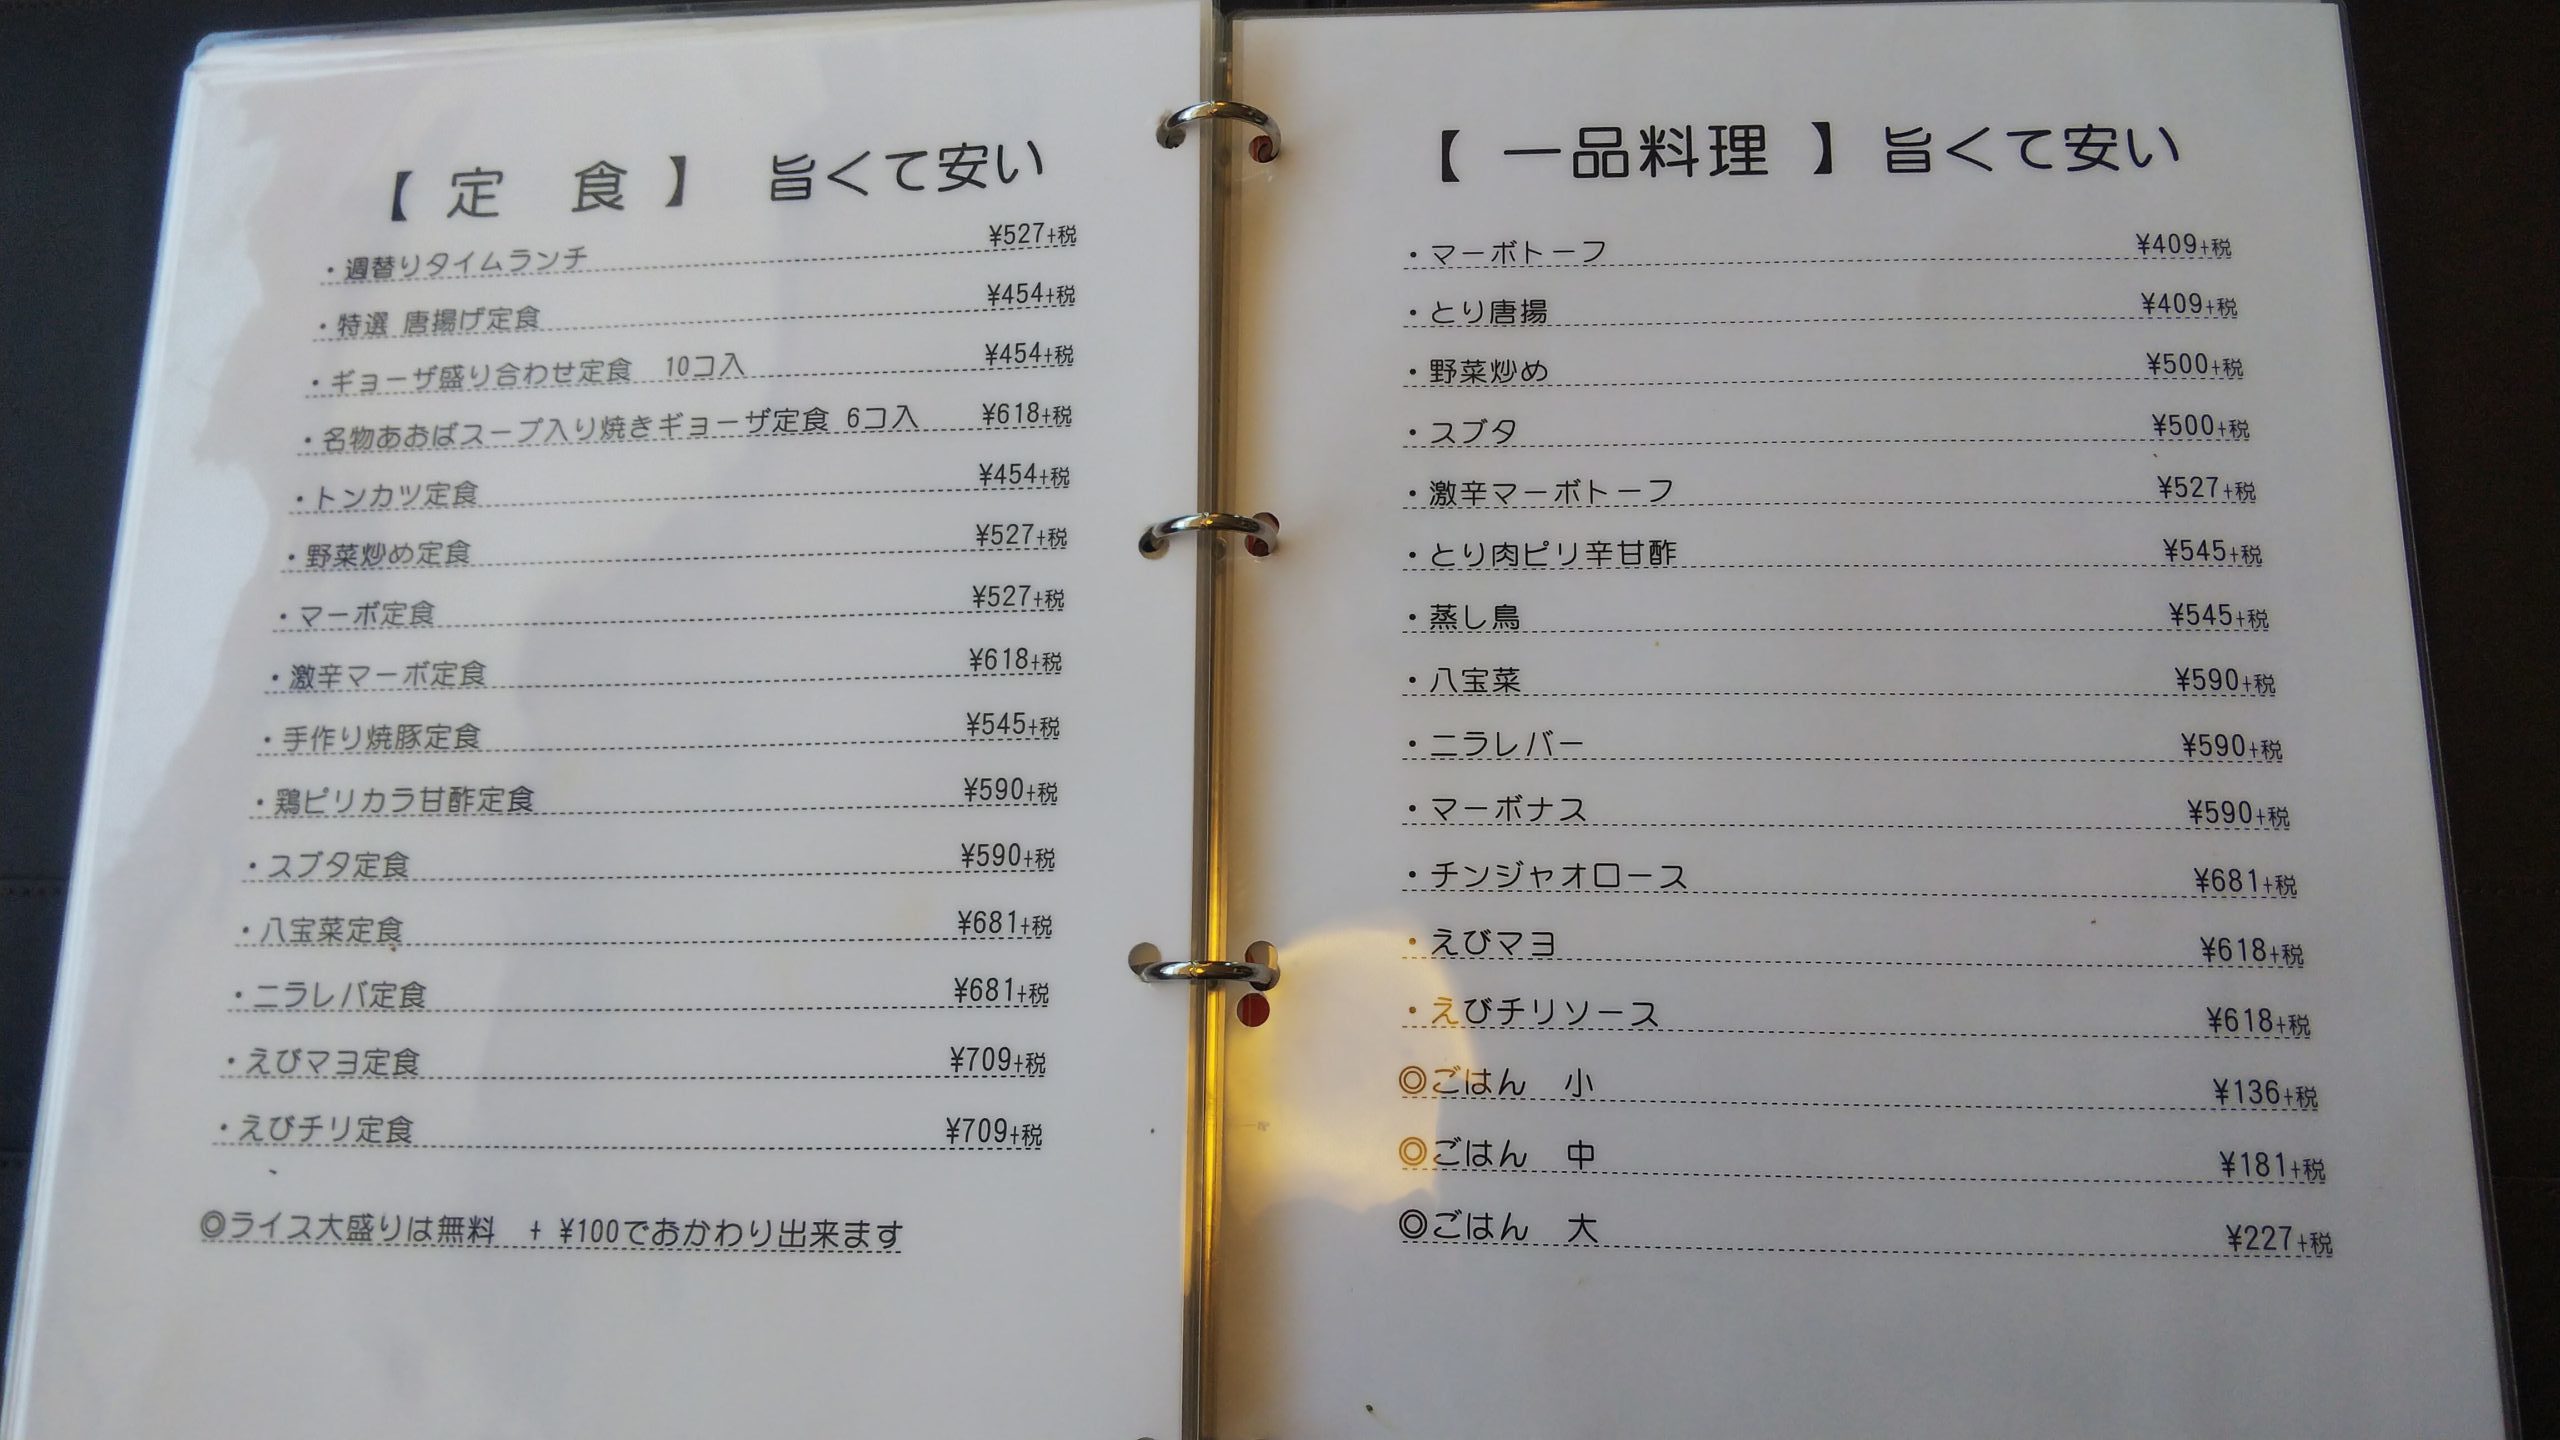 【 定　食 】　旨くて安い
・週替りタイムランチ ¥527+税
・特選 唐揚げ定食 ¥454+税
・ギョーザ盛り合わせ定食　10コ入 ¥454+税
・名物あおばスープ入り焼きギョーザ定食 6コ入 ¥618+税
・トンカツ定食 ¥454+税
・野菜炒め定食 ¥527+税
・マーボ定食 ¥527+税
・激辛マーボ定食 ¥618+税
・手作り焼豚定食 ¥545+税
・鶏ピリカラ甘酢定食 ¥590+税
・スブタ定食 ¥590+税
・八宝菜定食 ¥681+税
・ニラレバ定食 ¥681+税
・えびマヨ定食 ¥709+税
・えびチリ定食 ¥709+税
◎ライス大盛りは無料　+ ¥100でおかわり出来ます
【 一品料理 】 旨くて安い
・マーボトーフ ¥409+税
・とり唐揚 ¥409+税
・野菜炒め ¥500+税
・スブタ ¥500+税
・激辛マーボトーフ ¥527+税
・とり肉ピリ辛甘酢 ¥545+税
・蒸し鳥 ¥545+税
・八宝菜 ¥590+税
・ニラレバー ¥590+税
・マーボナス ¥590+税
・チンジャオロース ¥681+税
・えびマヨ ¥618+税
・えびチリソース ¥618+税
◎ごはん　小 ¥136+税
◎ごはん　中 ¥181+税
◎ごはん　大 ¥227+税